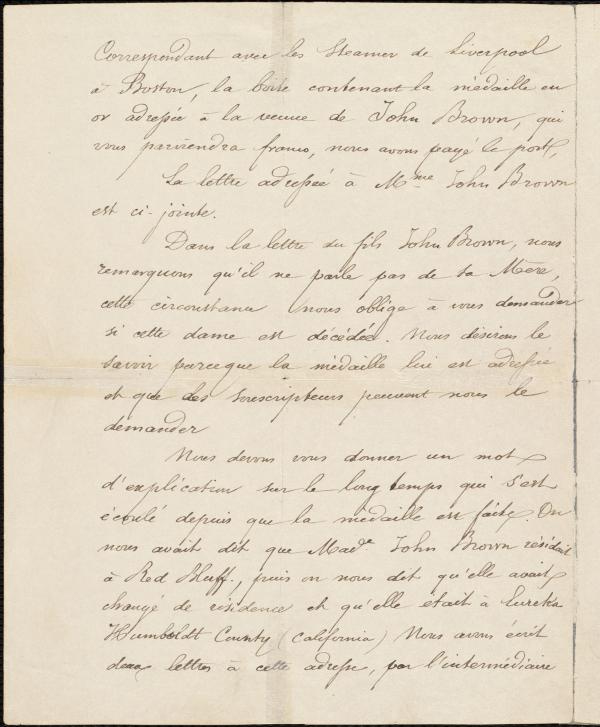 Correspondant avec les Steamer de Liverpool
à Boston, la boite contenant la médaille en
or adressée à la veuve de John Brown, qui
vous parviendra franco, nous avons payé le port,
La lettre adressée à Mme John Brown
est ci-jointe.
Dans la lettre du fils John Brown, nous
remarquons qu'il ne parle pas de sa Mère,
cette circonstance nous oblige à vous demander
si cette dame est décédée. Nous désirons le
savoir parceque la médaille lui est adressée
et que les souscripteurs peuvent nous le
demander
Nous devons vous donner un mot
d'explication sur le long temps qui s'est
écoulé depuis que la médaille est faite. On
nous avait dit que Made John Brown résidait
à Red Bluff., puis on nous dit qu'elle avait
changé de résidence et qu'elle était à Eureka
Humboldt County (California) Nous avons écrit
deux lettres à cette adresse, par l'intermédiaire